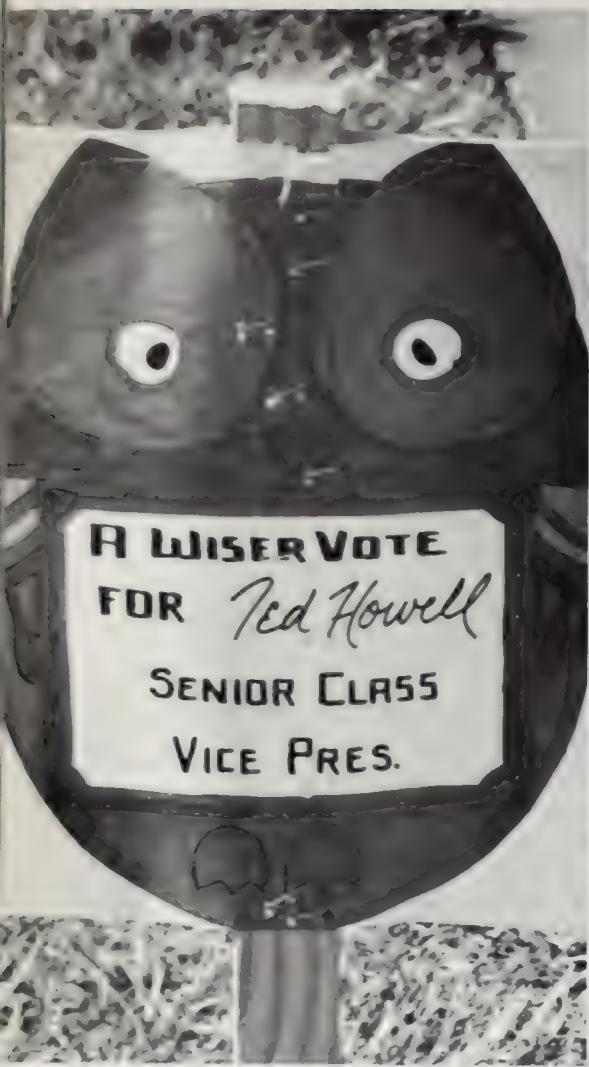 A WISER VOTE
FOR Ted Howell
SENIOR CLASS
VICE PRES.